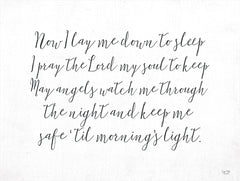 Now I lay me down to sleep
I pray the Lord my soul to keep
May angels watch me through
the night and keep me
safe 'til morning's light.